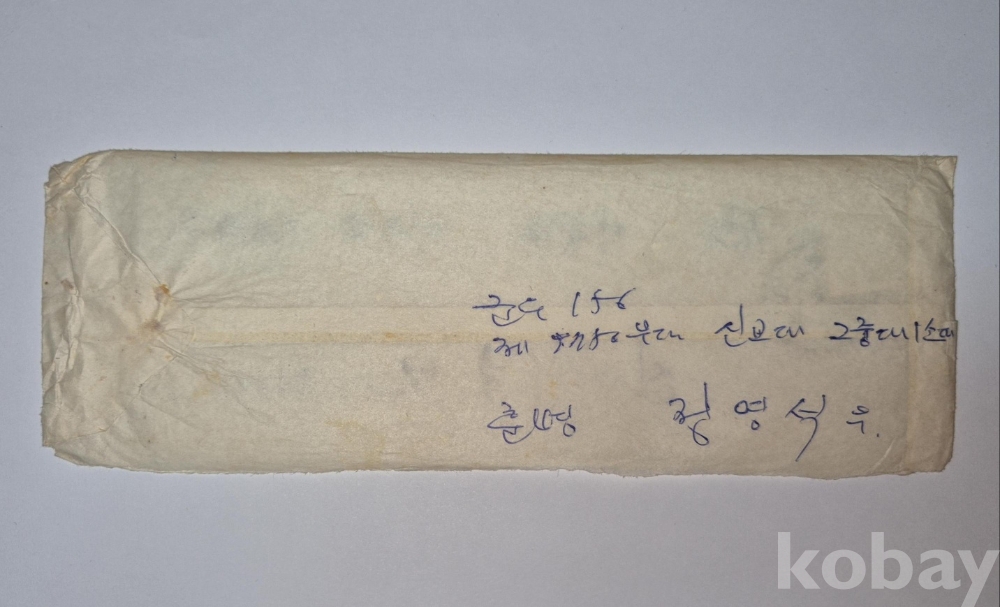 군우 156
제 부대 신교대 2중대 1소대
훈병 정영석 우.
kobay